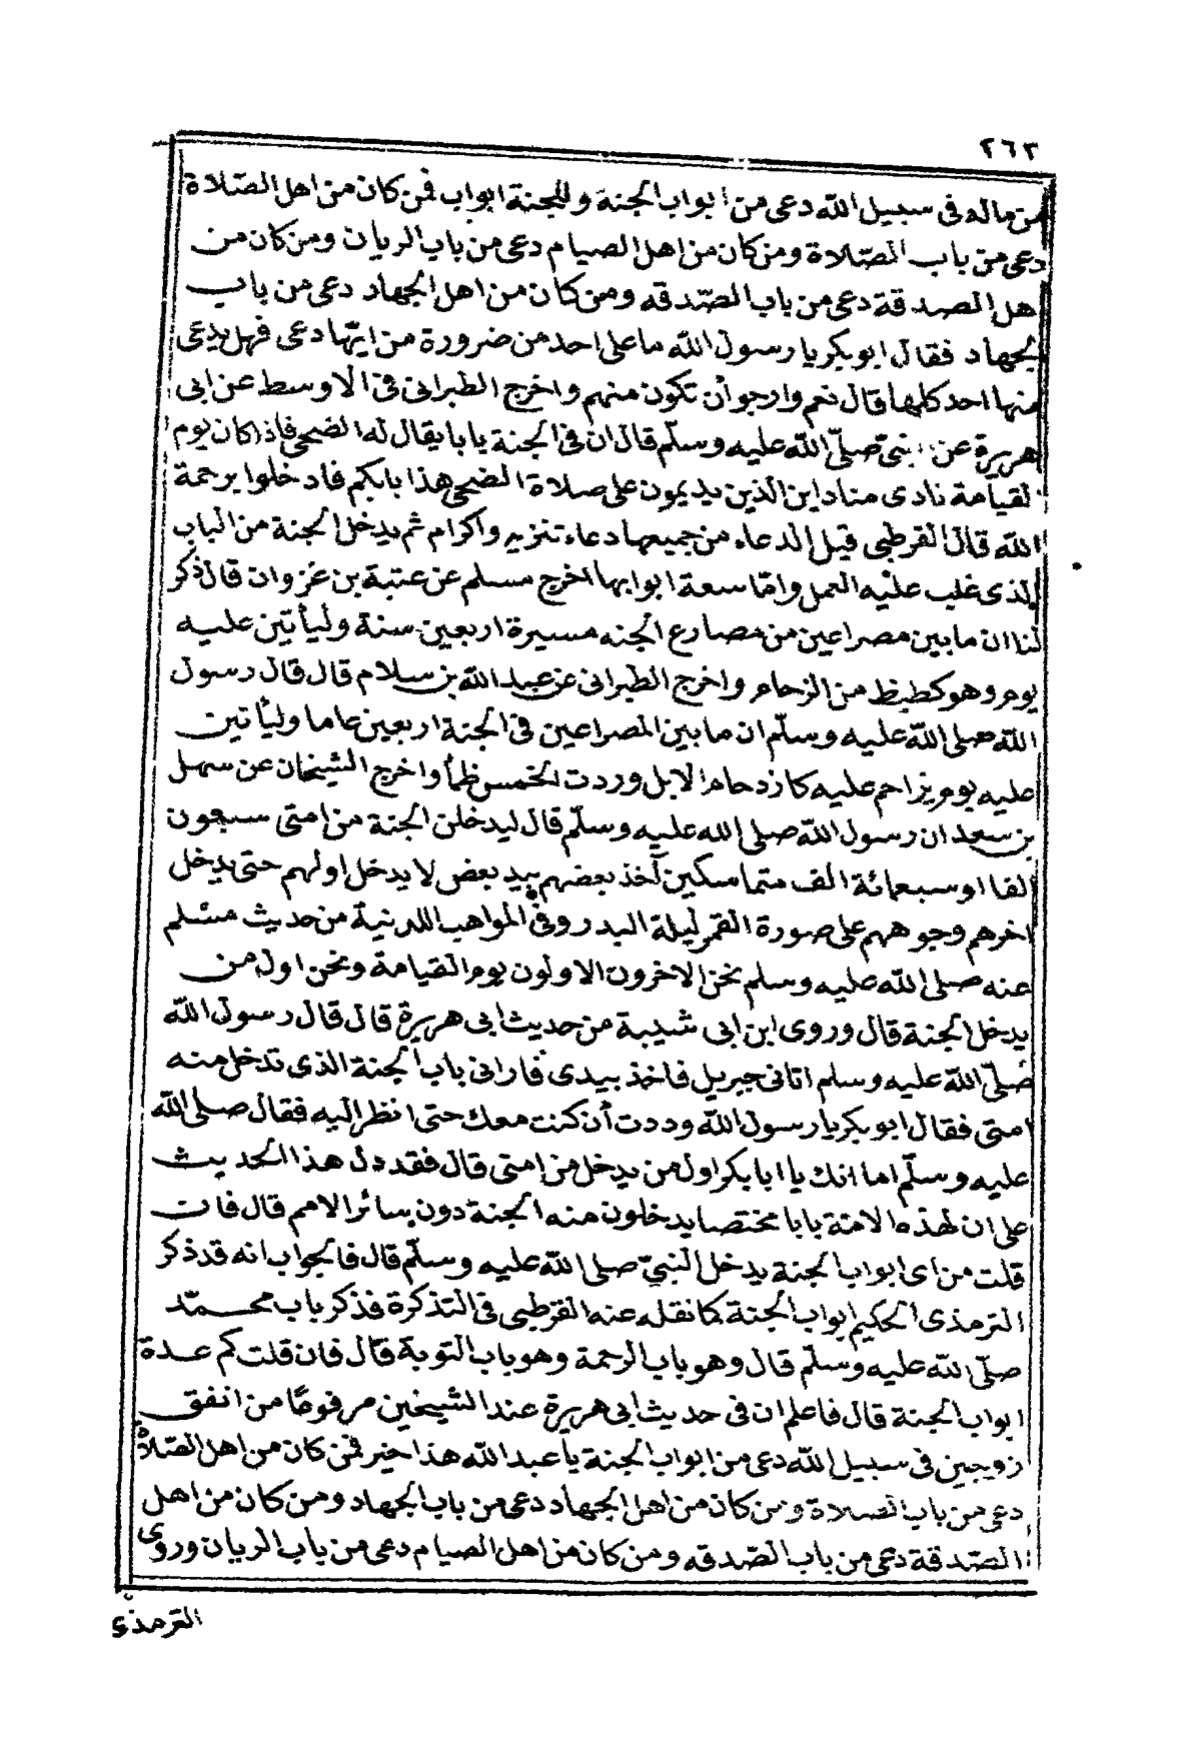 ٢٦٢
من ماله فى سبيل الله دعى من ابواب الجنة وللجنة ابواب فمن كان من اهل الصلاة
دعى من باب الصلاة ومن كان من اهل الصيام دعى من باب الريان ومن كان من
هل الصدقة دعى من باب الصدقه ومن كان من اهل الجهاد دعى من باب
لجهاد فقال ابو بكر يا رسول الله ما على احد من ضرورة من ايها دعى فهل يدعى
منها احد كلها قال نعم وارجو أن تكون منهم واخرج الطبرانى فى الاوسط عن ابى
هريرة عن النبى صلى الله عليه وسلم قال ان فى الجنة بابا يقال له الضحى فاذا كان يوم
لقيامة نادى مناد اين الذين يديمون على صلاة الضحى هذا بابكم فادخلوا برحمة
الله قال القرطبى قيل الدعاء من جميعها دعاء تنزيه واكرام ثم يدخل الجنة من الباب
لذى غلب عليه العمل وامّا سعة ابوابها اخرج مسلم عن عتبة بن غزوان قال ذكر
لنا ان ما بين مصراعين من مصارع الجنه مسيرة اربعين سنة وليأتين عليه
يوم وهو كظيظ من الزحام واخرج الطبرانى عن عبد الله بن سلام قال قال رسول
الله صلى الله عليه وسلم ان ما بين المصراعين فى الجنة اربعين عاما وليأتين
عليه يوم يزاحم عليه كازدحام الابل وردت الخمس ظمأ واخرج الشيخان عن سهل
بن سعد ان رسول الله صلى الله عليه وسلم قال ليدخلن الجنة من امتى سبعون
الفا او سبعمائة الف متماسكين آخذ بعضهم بيد بعض لا يدخل اولهم حتى يدخل
اخرهم وجوههم على صورة القمر ليلة البدر وفى المواهب اللدنية من حديث مسلم
عنه صلى الله عليه وسلم نحن الاخرون الاولون يوم القيامة ونحن اول من
يدخل الجنة قال وروى ابن ابى شيبة من حديث ابى هريرة قال قال رسول الله
صلى الله عليه وسلم اتانى جبريل فاخذ بيدى فارانى باب الجنة الذى تدخل منه
امتى فقال ابو بكر يا رسول الله وددت أن كنت معك حتى انظر اليه فقال صلى الله
عليه وسلم اما انك يا ابا بكر اول من يدخل من امتى قال فقد دل هذا الحديث
على ان لهذه الامة بابا مختصا يدخلون منه الجنة دون سائر الامم قال فان
قلت من اى ابواب الجنة يدخل النبى صلى الله عليه وسلم قال فالجواب انه قد ذكر
الترمذى الحكيم ابواب الجنة كما نقله عنه القرطبى فى التذكرة فذكر باب محمد
صلى الله عليه وسلم قال وهو باب الرحمة وهو باب التوبة قال فان قلت كم عدة
ابواب الجنة قال فاعلم ان فى حديث ابى هريرة عند الشيخين مرفوعًا من انفق
زوجين فى سبيل الله دعى من ابواب الجنة يا عبد الله هذا خير فمن كان من اهل الصلاة
دعى من باب الصلاة ومن كان من اهل الجهاد دعى من باب الجهاد ومن كان من اهل
الصدقة دعى من باب الصدقه ومن كان من اهل الصيام دعى من باب الريان وروى
الترمذى